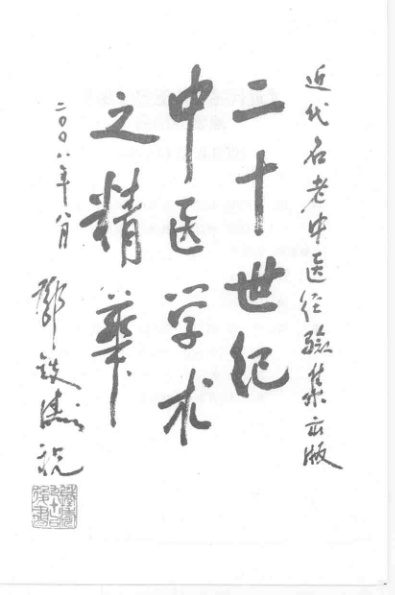 近代名老中医经验集出版
二十世纪
中医学术
之精华
二〇〇八年八月
邓铁涛
祝